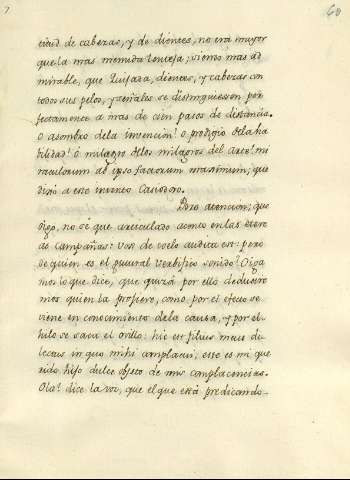 7
60
cidad de cabezas, y de dientes, no era mayor
que la mas menuda lenteja; siento mas ad
mirable, que quijada, dientes, y cabezas con
todos sus pelos, y señales se distinguiessen per
fectamente a mas de cien pasos de distancia.
O asombro dela invencion! o prodigio dela ha
bilidad! ò milagro delos milagros del arte! mi
raculorum ab ipso factorum maximum; que
dixo a este intento Casiodoro.
Pero atencion; que
oigo, no sè que articulado acento en las etere
as campañas: Vox de coelo audita est: pero
de quien es el gutural verbifico sonido? Oiga
mos lo que dice, que quizá por ello deducire
mos quien lo profiere, como por el efecto se
viene en conocimiento de la causa, y por el
hilo se saca el ovillo: hic est filius meus di
lectus in quo mihi complacui, este es mi que
rido hijo dulce objeto de mis complacencias.
Ola! dice la voz, que el que està predicando-